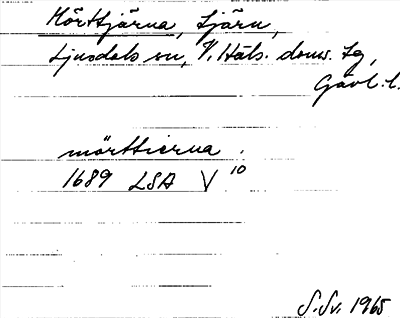 Mörttjärna, tjärn,
Ljusdals sn, V. Häls. doms. tg,
Gävl. l.
mörttierna.
1689 LSA V 10
S.Sv. 1965